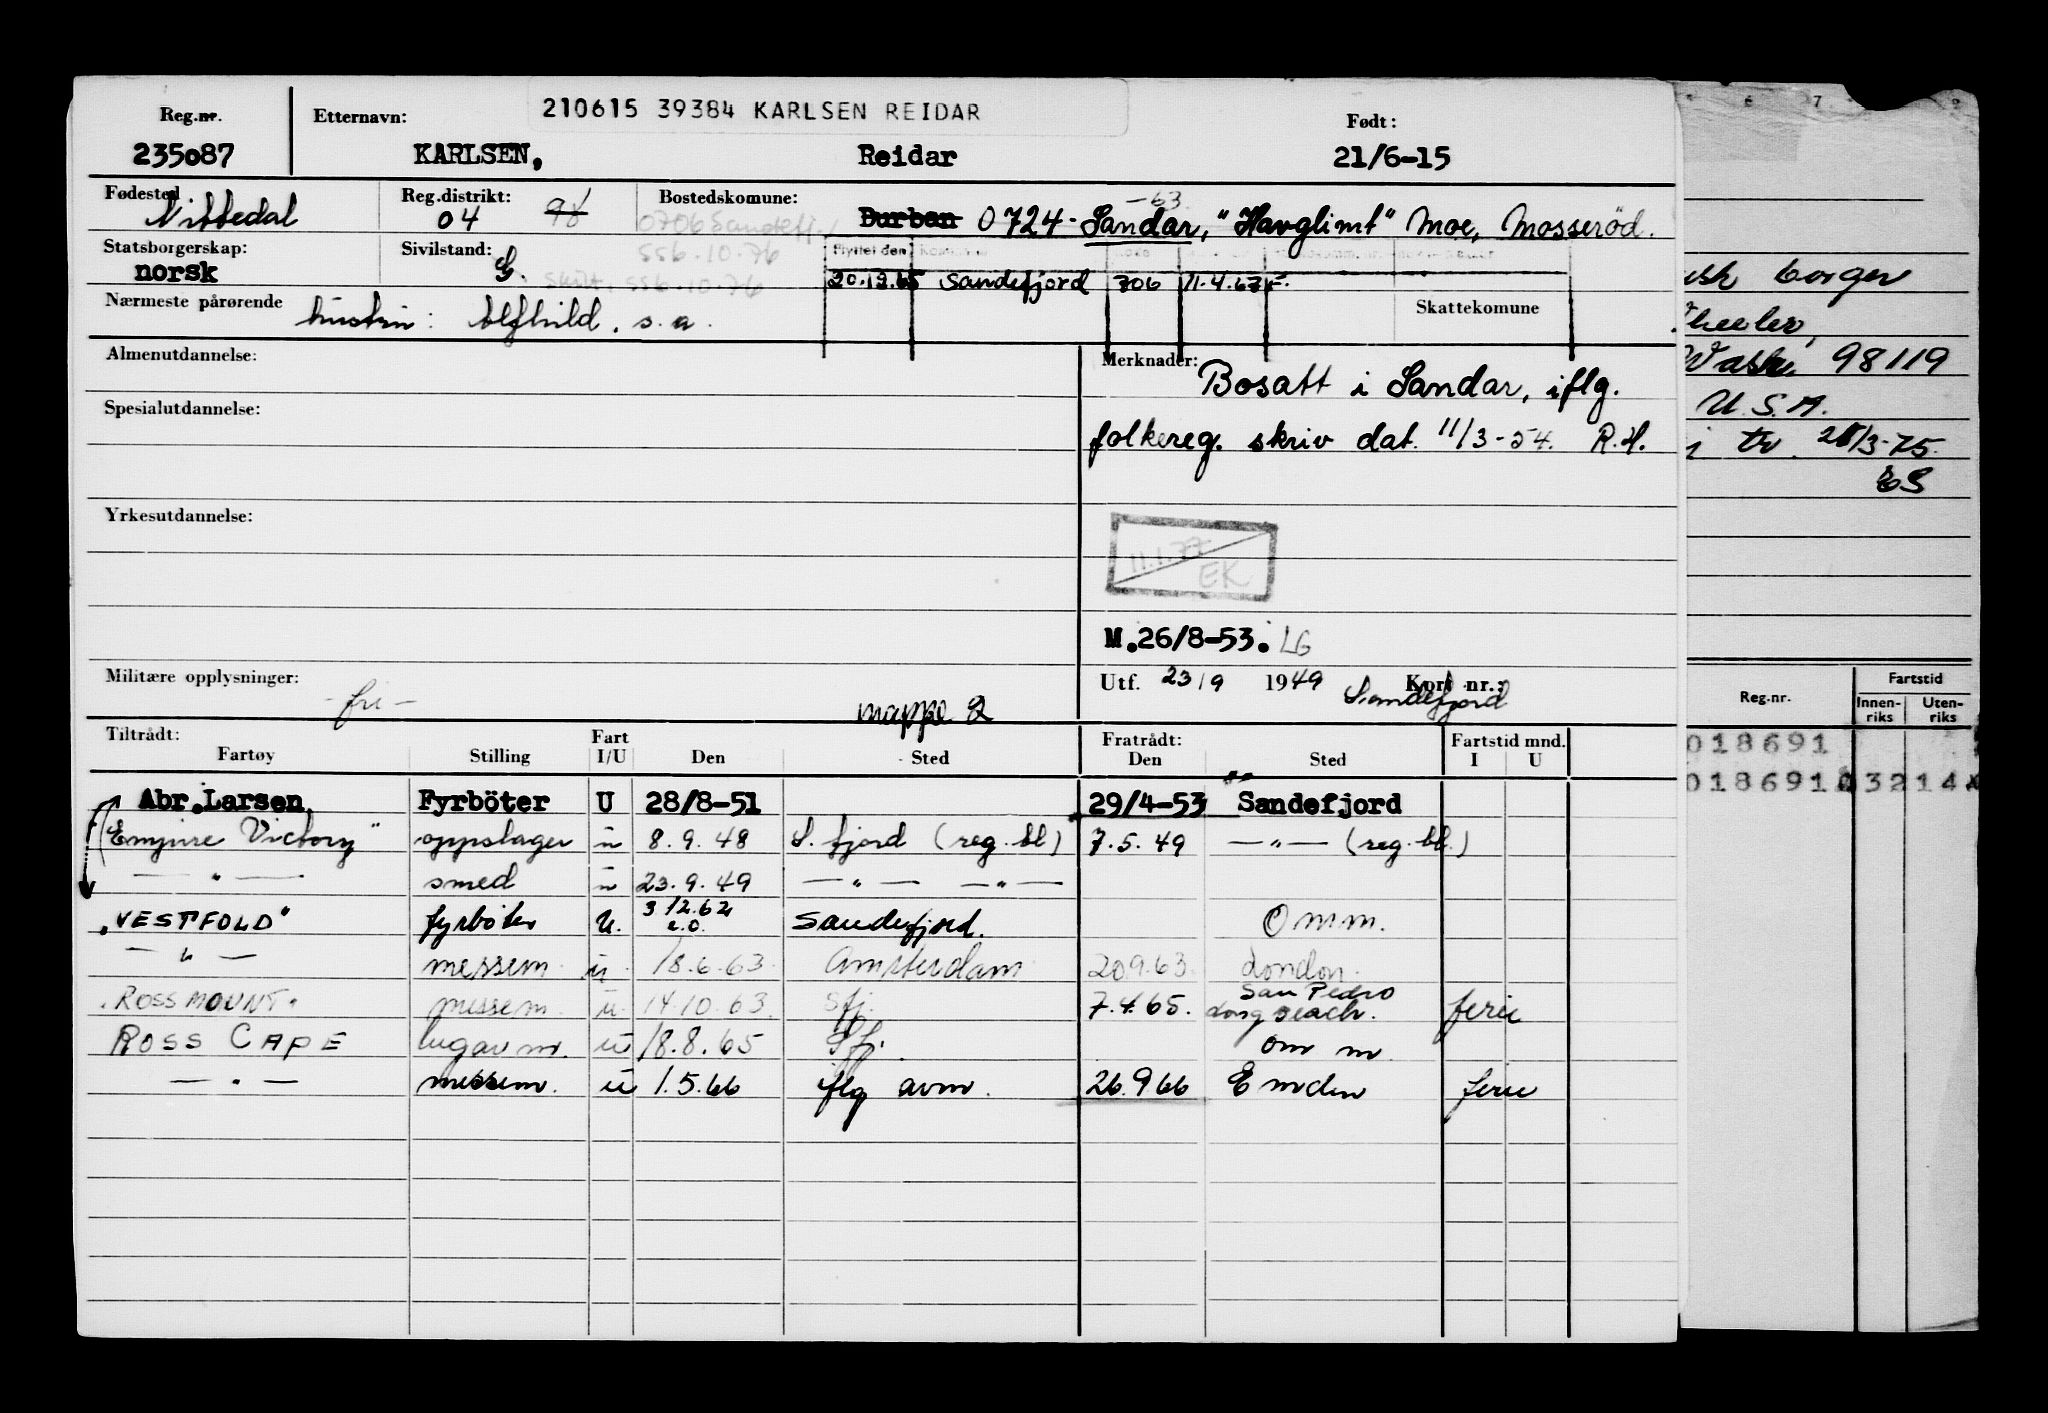 210615 39384 KARLSEN REIDAR
Reg.nr. Etternavn: Født:
235087 KARLSEN, Reidar 21/6-15
Fødested Nittedal Reg.distrikt: 04 Bostedskomune: Durban 0724 - Sandar, "Havglimt" Moe, Mosserød. -63.
0706 Sandefj.
Statsborgerskap: norsk Sivilstand: G. 556.10.76
Skift. 556.10.76
Flyttet den
20.12.65 Sandefjord 706 11.4.67 F.
Nærmeste pårørende hustru: Alfhild. s.a. Skattekomune
Almenutdannelse: Merknader: Bosatt i Sandar, iflg.
Spesialutdannelse: folkereg. skriv dat. 11/3-54. R.H.
Yrkesutdannelse:
11.1.77 EK
M.26/8-53. LG
Militære opplysninger: -fri- mappe 2 Utf. 23/9 1949 Kort nr.: Sandefjord
Tiltrådt: Fratrådt: Fartstid mnd.
Fartøy Stilling Fart I/U Den Sted Den Sted I U
Abr.Larsen Fyrböter U 28/8-51 29/4-53 Sandefjord
"Empire Victory" oppslager u 8.9.48 S.fjord (reg.bl) 7.5.49 —"— (reg.bl.)
—"— smed u 23.9.49 —"— —"—
"VESTFOLD" fyrböter U. 3/12.62 e.o. Sandefjord. Omm.
—"— messem. u. 18.6.63. Amsterdam 20.9.63. London.
"ROSSMOUNT" messem. u. 14.10.63. Sfj. 7.4.65. San Pedro Long Beach. ferie
ROSS CAPE lugarm. u 18.8.65 Sfj. om m
—"— messem. u 1.5.66 iflg avm. 26.9.66 Emden ferie
6 7
borger
Wheeler,
Wash. 98119
U.S.A.
i tv. 21/3-75.
ES
Reg.nr. Fartstid
Innenriks Utenriks
018691
018691